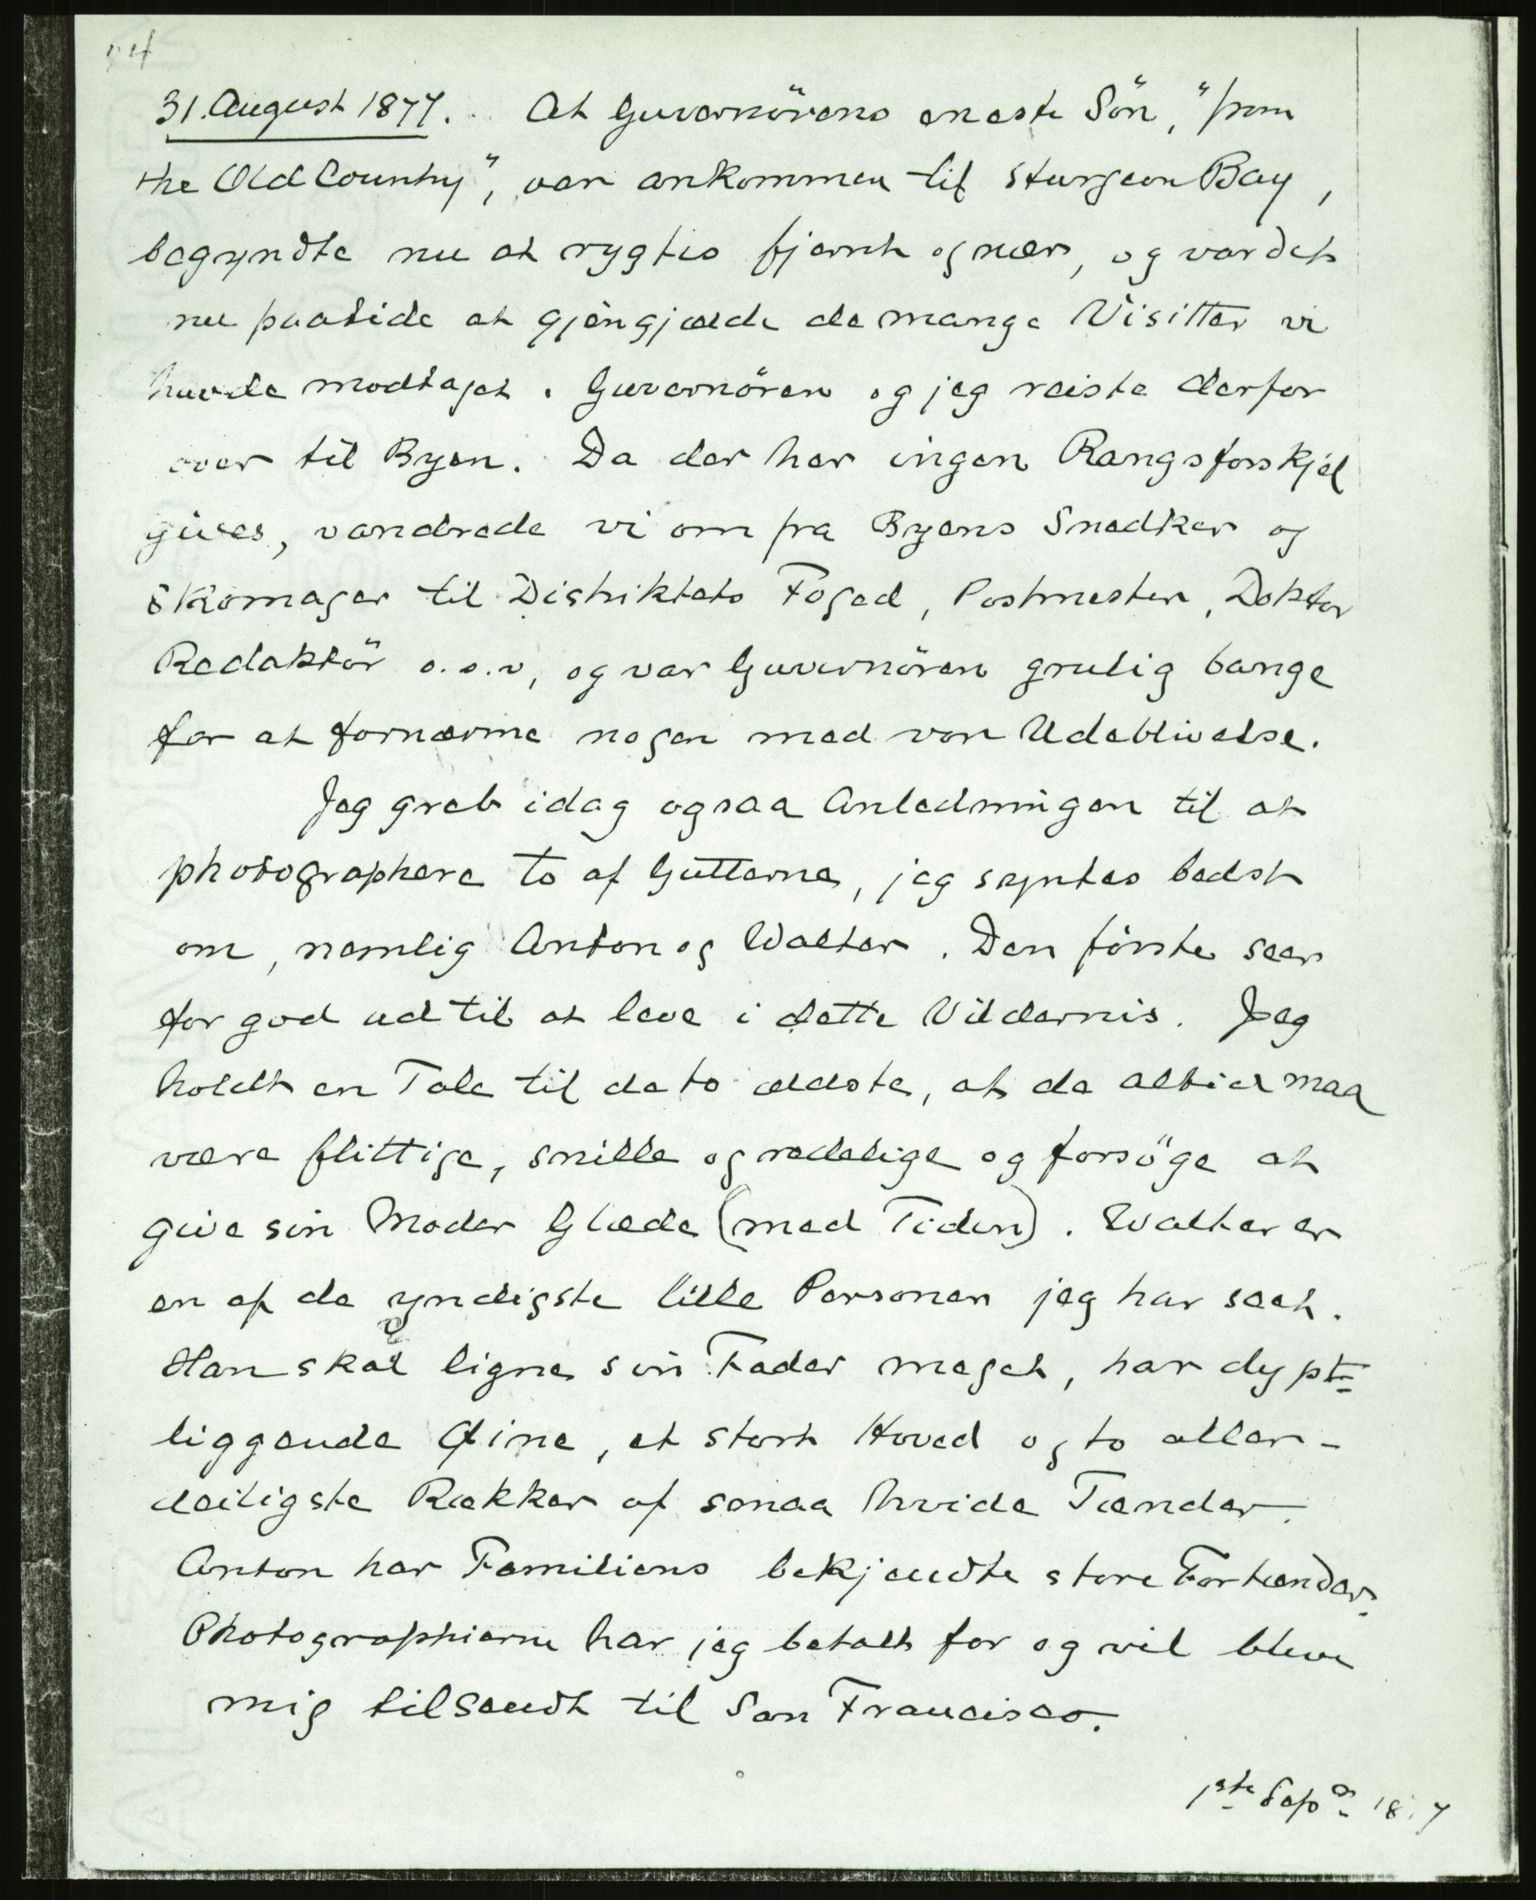 31. August 1877. At Guvernörens eneste Sön, "from
the Old Country", var ankommen til Sturgeon Bay,
begyndte nu at rygtes fjernt og nær, og var det
nu paatide at gjengjælde de mange Visitter vi
havde modtaget. Guvernören og jeg reiste derfor
over til Byen. Da der her ingen Rangsforskjel
gives, vandrede vi om fra Byens Snedker og
Skomager til Distriktets Foged, Postmester, Doktor
Redaktör o.s.v, og var Guvernören grulig bange
for at fornærme nogen med vor Udeblivelse.
Jeg greb idag ogsaa Anledningen til at
photographere to af Gutterne, jeg syntes bedst
om, nemlig Anton og Walter. Den förste seer
for god ud til at leve i dette Vildernis. Jeg
holdt en Tale til de to ældste, at de altid maa
være flittige, snille og redelige og forsöge at
give sin Moder Glæde (med Tiden). Walter er
en af de yndigste lille Personer jeg har seet.
Han skal ligne sin Fader meget, har dypt-
liggende Øine, et stort Hoved og to aller-
deiligste Rækker af smaa hvide Tænder.
Anton har Familiens bekjendte store Fortænder.
Photographierne har jeg betalt for og vil blive
mig tilsendt til San Francisco.
1ste Sep